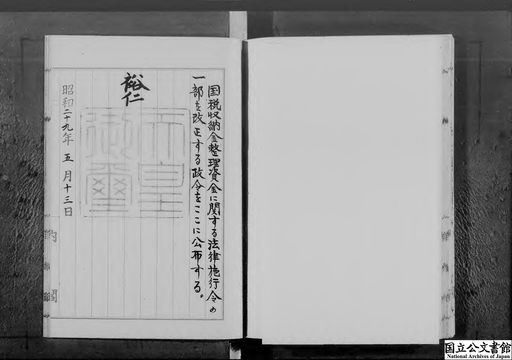 国税収納金整理資金に関する法律施行令の
一部を改正する政令をここに公布する。
裕仁
天皇
御璽
昭和二十九年五月十三日
内閣
国立公文書館
National Archives of Japan